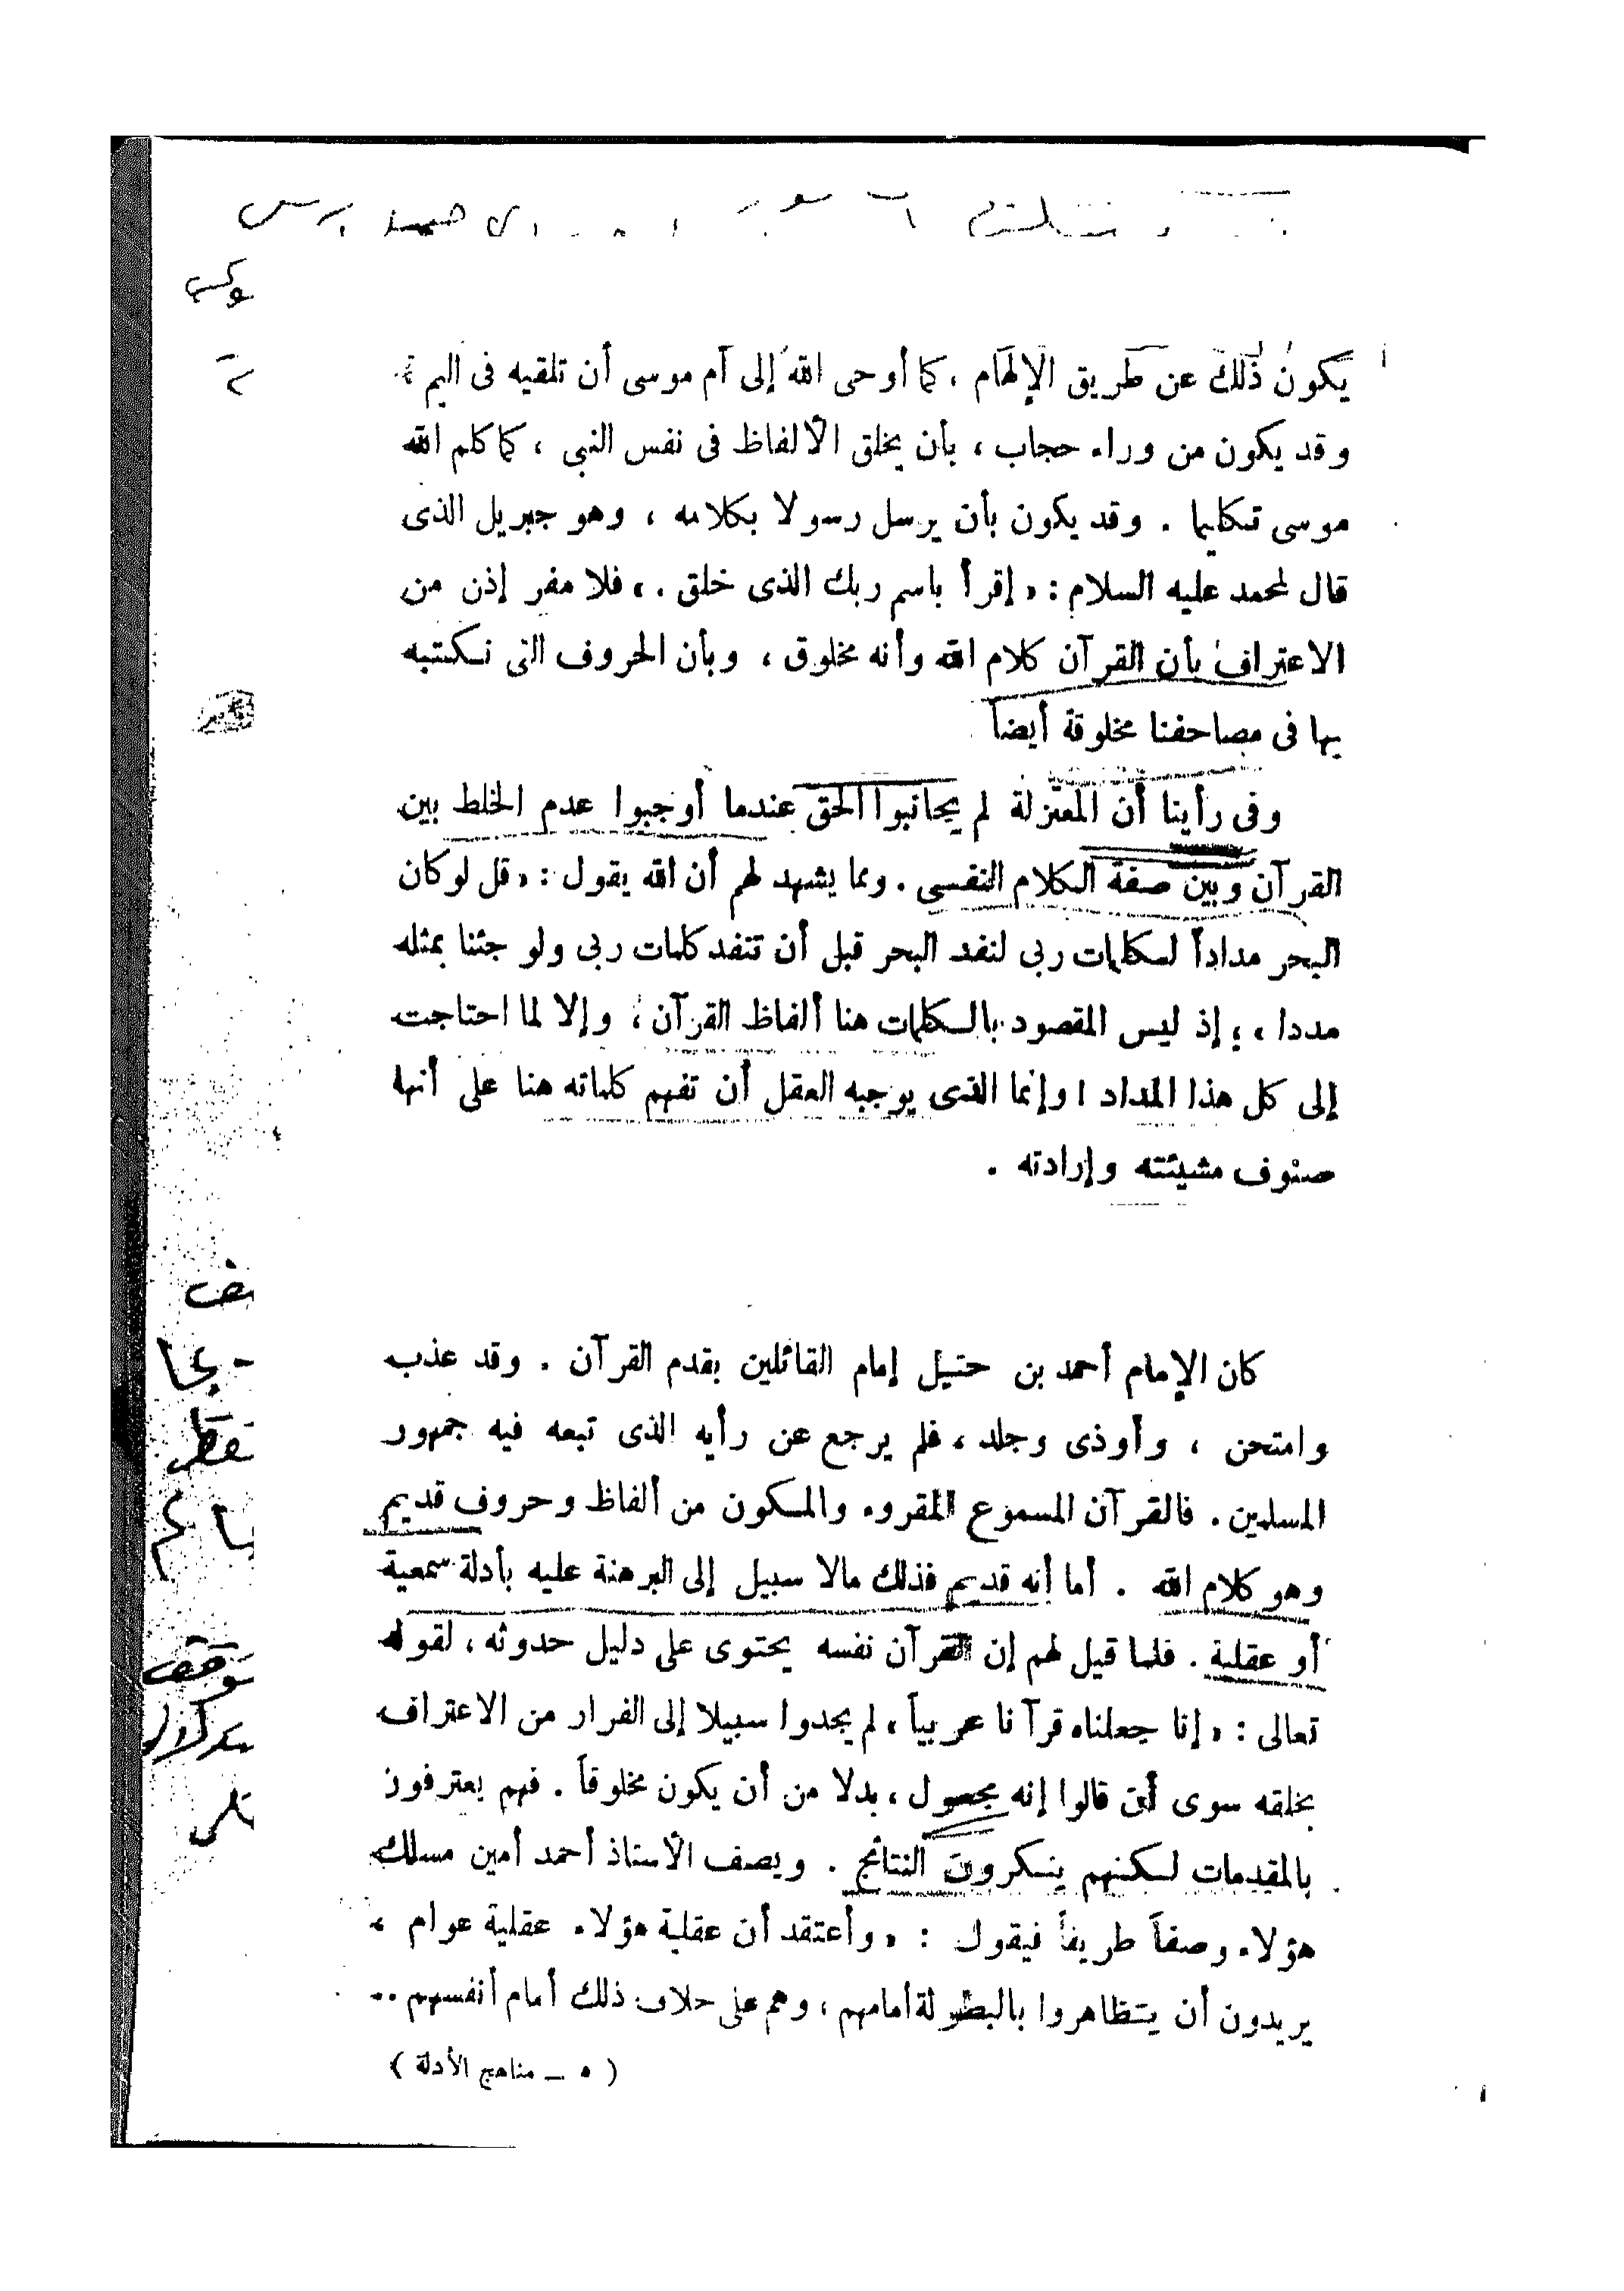 يكون ذلك عن طريق الإلهام ، كما أوحى الله إلى أم موسى أن تلقيه فى اليم ؛
وقد يكون من وراء حجاب ، بأن يخلق الألفاظ فى نفس النبى ، كما كلم الله
موسى تكليما . وقد يكون بأن يرسل رسولا بكلامه ، وهو جبريل الذى
قال لمحمد عليه السلام : « إقرأ باسم ربك الذى خلق . » فلا مفر إذن من
الاعتراف بأن القرآن كلام الله وأنه مخلوق ، وبأن الحروف التى نكتبه
بها فى مصاحفنا مخلوقة أيضاً
وفى رأينا أن المعتزلة لم يجانبوا الحق عندما أوجبوا عدم الخلط بين
القرآن وبين صفة الكلام النفسى . ومما يشهد لهم أن الله يقول : « قل لو كان
البحر مداداً لكلمات ربى لنفد البحر قبل أن تنفد كلمات ربى ولو جئنا بمثله
مددا » ؛ إذ ليس المقصود بالكلمات هنا ألفاظ القرآن ، وإلا لما احتاجت
إلى كل هذا المداد ! وإنما الذى يوجبه العقل أن تفهم كلماته هنا على أنها
صنوف مشيئته وإرادته .
كان الإمام أحمد بن حنبل إمام القائلين بقدم القرآن . وقد عذب
وامتحن ، وأوذى وجلد ، فلم يرجع عن رأيه الذى تبعه فيه جمهور
المسلمين . فالقرآن المسموع المقروء والمكون من ألفاظ وحروف قديم
وهو كلام الله . أما أنه قديم فذلك مالا سبيل إلى البرهنة عليه بأدلة سمعية
أو عقلية . فلما قيل لهم إن القرآن نفسه يحتوى على دليل حدوثه ، لقوله
تعالى : « إنا جعلناه قرآنا عربياً » لم يجدوا سبيلا إلى الفرار من الاعتراف
بخلقه سوى أن قالوا إنه مجعول ، بدلا من أن يكون مخلوقاً . فهم يعترفون
بالمقدمات لكنهم ينكرون النتائج . ويصف الأستاذ أحمد أمين مسلك
هؤلاء وصفاً طريفاً فيقول : « وأعتقد أن عقلية هؤلاء عقلية عوام ،
يريدون أن يتظاهروا بالبطولة أمامهم ، وهم على خلاف ذلك أمام أنفسهم ..
( ٥ ــ مناهج الأدلة )